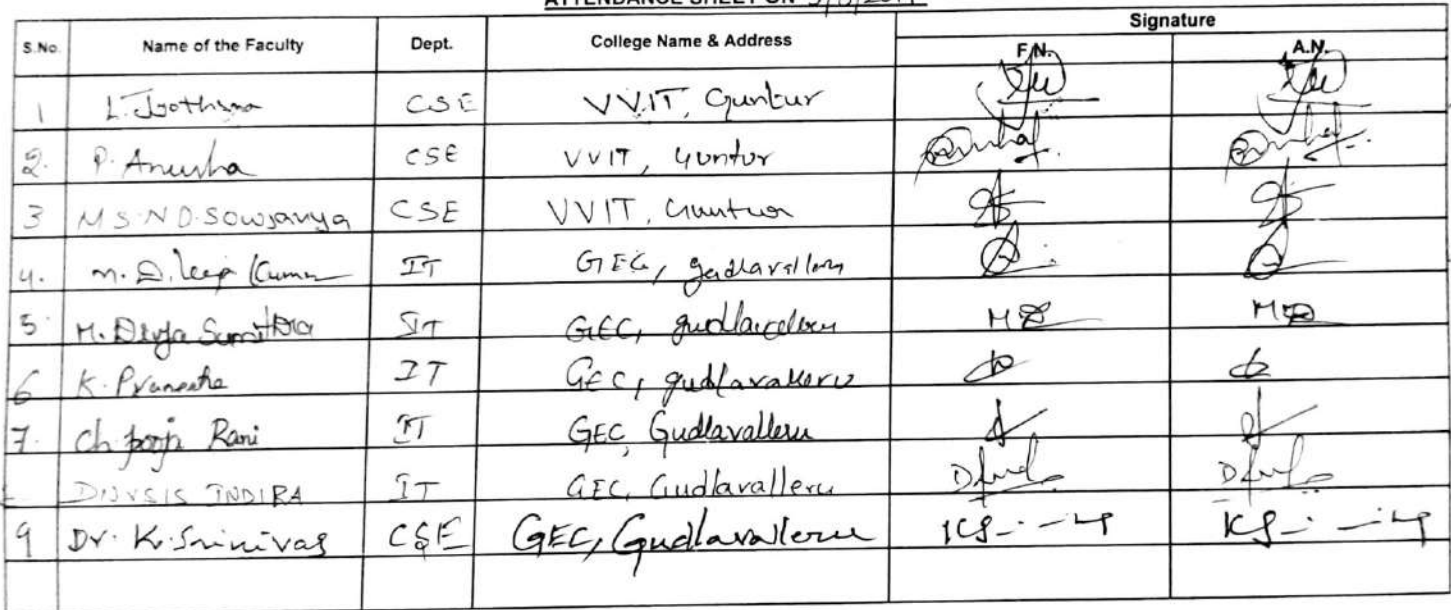 ATTENDANCE SHEET ON
Signature
S.No. Name of the Faculty Dept. College Name & Address F.N. A.N.
1 L. CSE VVIT, Guntur
2. P. Anusha CSE VVIT, Guntur
3 M S.N D.Sowjanya CSE VVIT, Guntur
4. M. Dileep Kumar IT GEC, gudlavalleru
5 M. Divya IT GEC, gudlavalleru
6 K. Praneetha IT GEC, gudlavalleru
7. Ch. Rani IT GEC, Gudlavalleru
INDIRA IT GEC, Gudlavalleru
9 Dr. K. Srinivas CSE GEC, Gudlavalleru